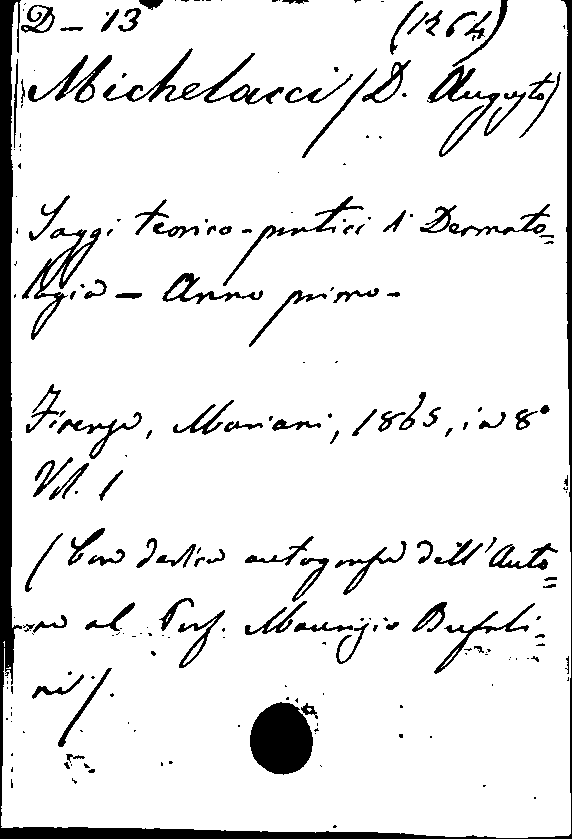 D - 13 (1264)
Michelacci (D. Augusto)
Saggi teorico-pratici di Dermato=
logia - Anno primo -
Firenze, Mariani, 1865, in 8°
Vol. 1
(Con dedica autografa dell'Auto=
re al Prof. Maurizio Bufali=
ni).